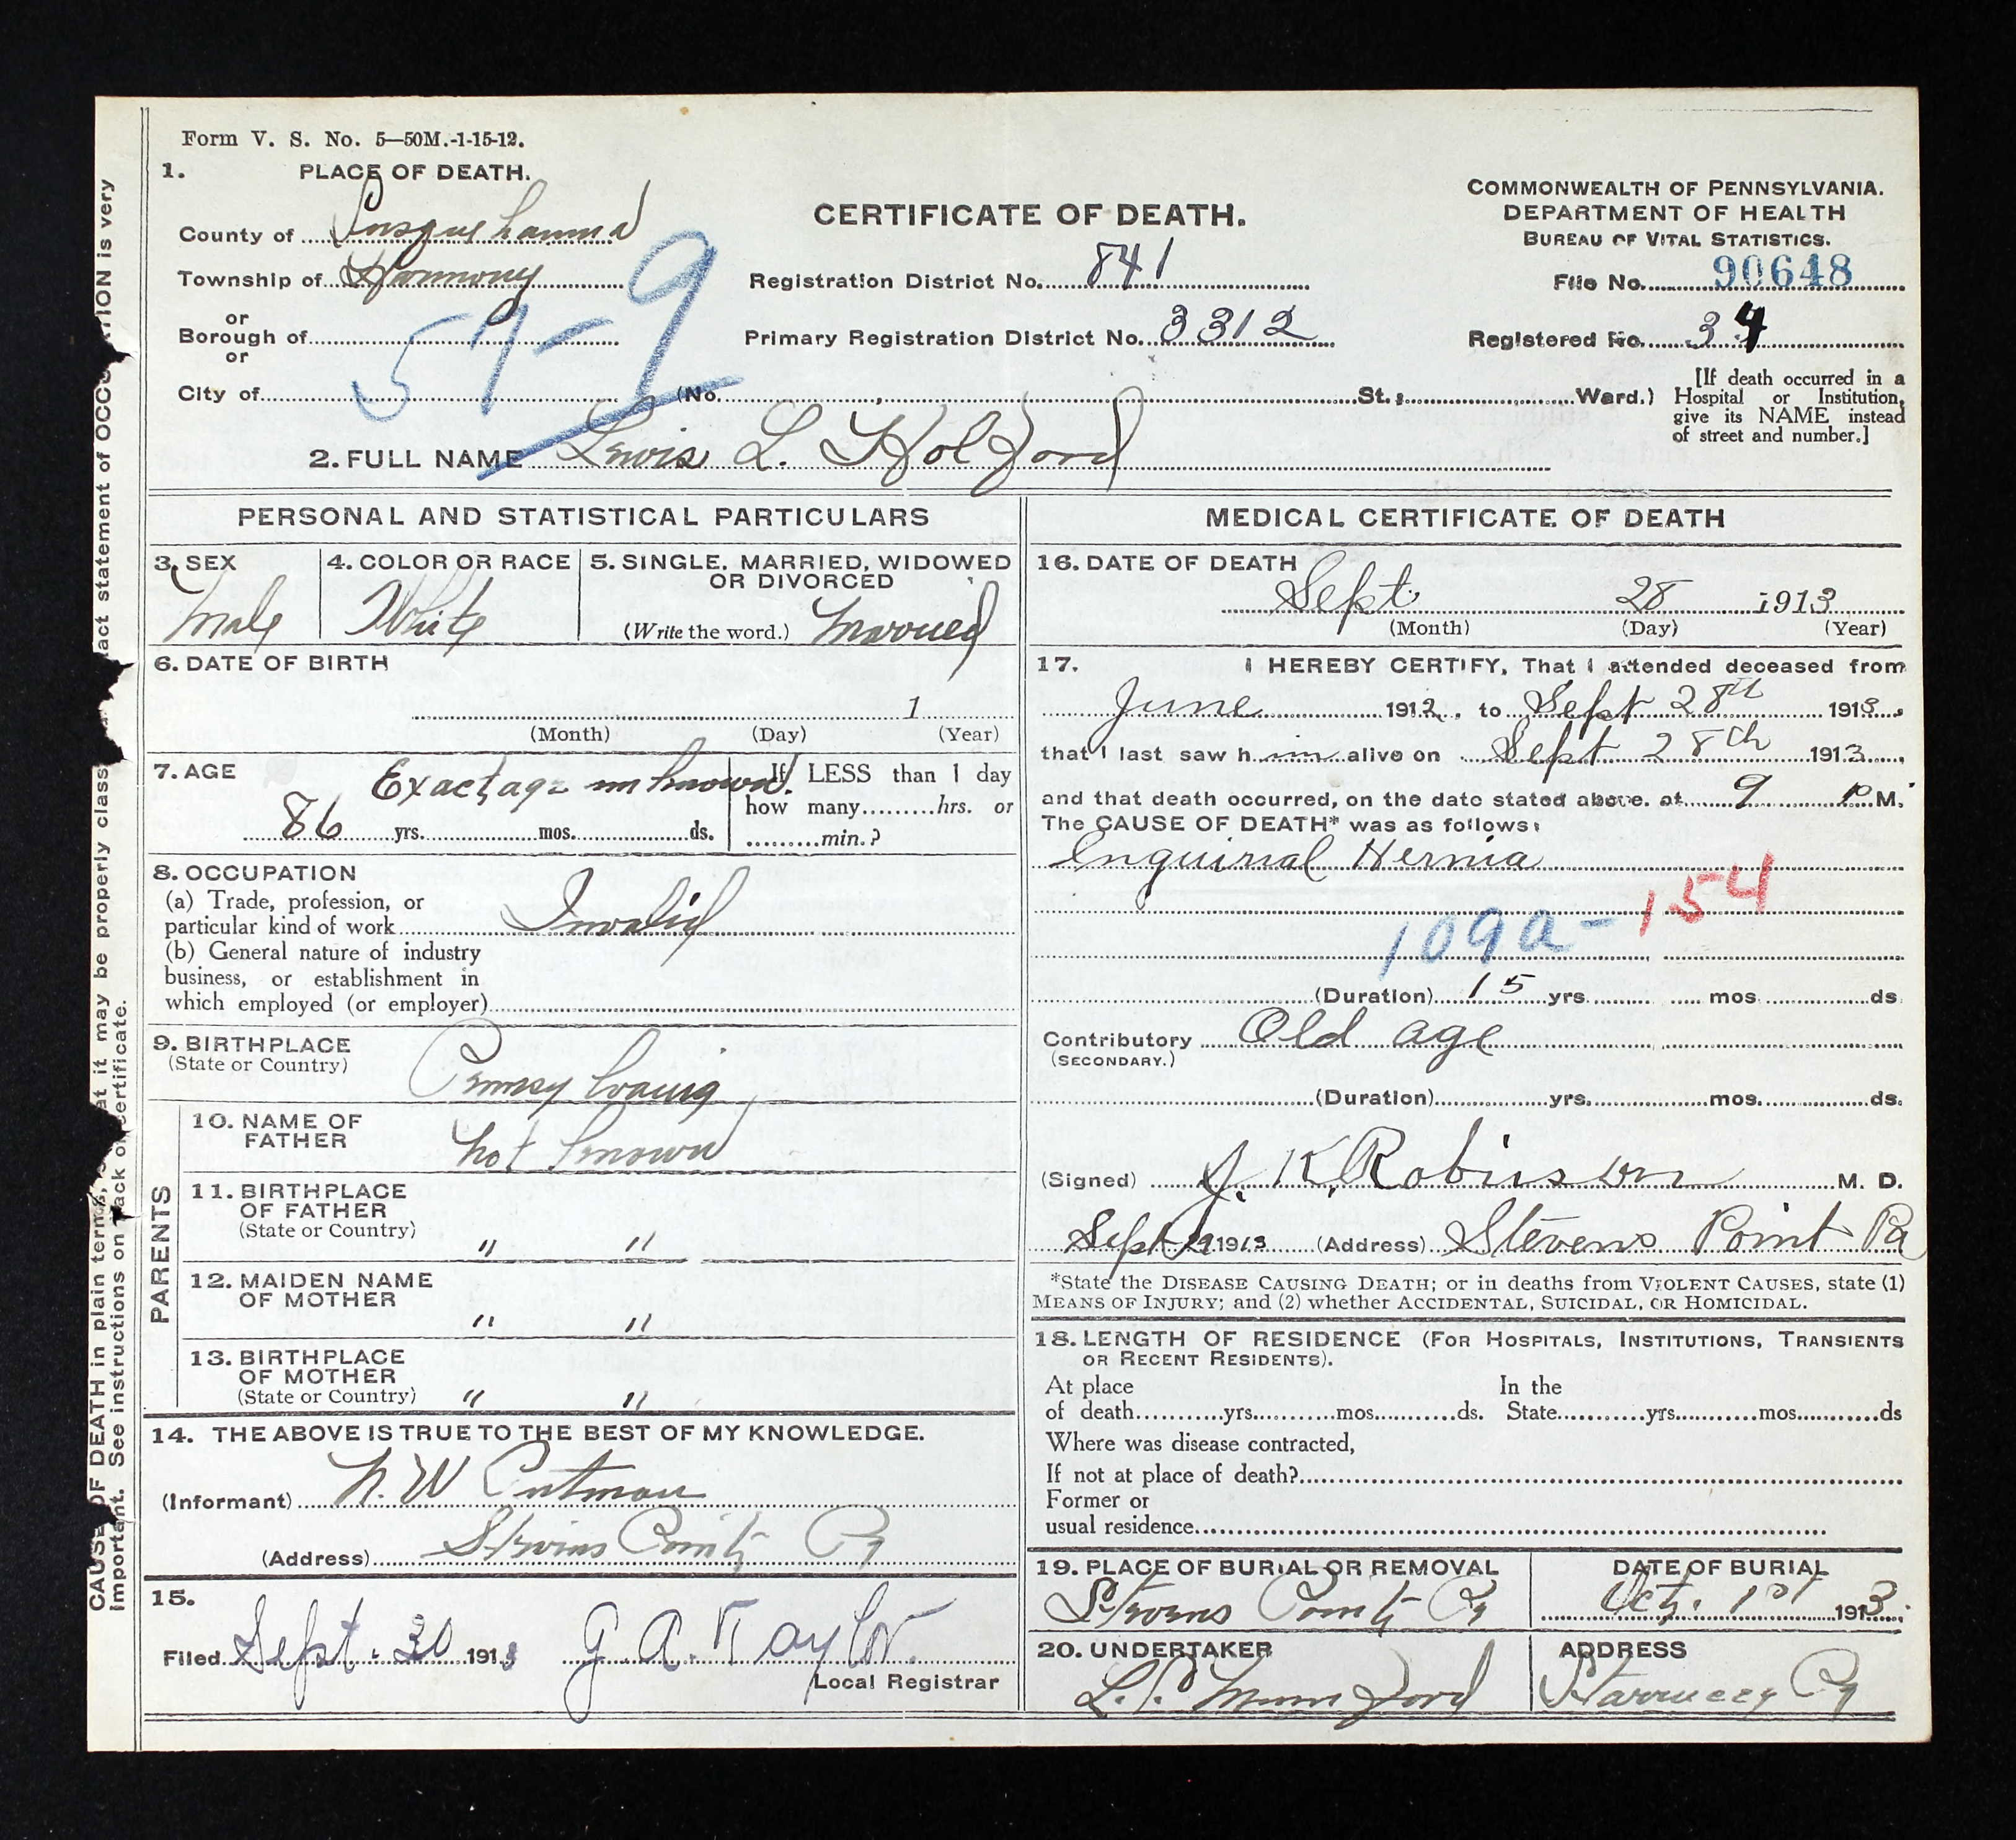 Form V. S. No. 5—50M.-1-15-12.
1. PLACE OF DEATH.
County of Susquehanna
Township of Harmony
or
Borough of
or
City of
57-9
CERTIFICATE OF DEATH.
Registration District No. 841
Primary Registration District No. 3312
(No. , St.; Ward.)
COMMONWEALTH OF PENNSYLVANIA.
DEPARTMENT OF HEALTH
BUREAU OF VITAL STATISTICS.
File No. 90648
Registered No. 34
[If death occurred in a
Hospital or Institution,
give its NAME instead
of street and number.]
2. FULL NAME Lewis L. Holford
PERSONAL AND STATISTICAL PARTICULARS
3. SEX
Male
4. COLOR OR RACE
White
5. SINGLE, MARRIED, WIDOWED
OR DIVORCED
(Write the word.) Married
6. DATE OF BIRTH
1
(Month) (Day) (Year)
7. AGE
Exact age unknown.
86 yrs. mos. ds.
If LESS than 1 day
how many hrs. or
min.?
8. OCCUPATION
(a) Trade, profession, or
particular kind of work Invalid
(b) General nature of industry
business, or establishment in
which employed (or employer)
9. BIRTHPLACE
(State or Country)
Pennsylvania
PARENTS
10. NAME OF
FATHER
not known
11. BIRTHPLACE
OF FATHER
(State or Country) " "
12. MAIDEN NAME
OF MOTHER
" "
13. BIRTHPLACE
OF MOTHER
(State or Country) " "
14. THE ABOVE IS TRUE TO THE BEST OF MY KNOWLEDGE.
(Informant) N. W Putman
(Address) Stevens Point Pa
15.
Filed Sept. 30 1913 G. A. Taylor.
Local Registrar
MEDICAL CERTIFICATE OF DEATH
16. DATE OF DEATH
Sept. 28 1913
(Month) (Day) (Year)
17. I HEREBY CERTIFY, That I attended deceased from
June 1912, to Sept 28th 1913,
that I last saw him alive on Sept 28th 1913,
and that death occurred, on the date stated above, at 9 P M.
The CAUSE OF DEATH* was as follows:
Inguinal Hernia
109a-154
(Duration) 15 yrs. mos. ds.
Contributory Old age
(SECONDARY.)
(Duration) yrs. mos. ds.
(Signed) J. K. Robinson M. D.
Sept 29 1913 (Address) Stevens Point Pa
*State the DISEASE CAUSING DEATH; or in deaths from VIOLENT CAUSES, state (1)
MEANS OF INJURY; and (2) whether ACCIDENTAL, SUICIDAL, OR HOMICIDAL.
18. LENGTH OF RESIDENCE (FOR HOSPITALS, INSTITUTIONS, TRANSIENTS
OR RECENT RESIDENTS).
At place In the
of death yrs. mos. ds. State yrs. mos. ds
Where was disease contracted,
If not at place of death?
Former or
usual residence
19. PLACE OF BURIAL OR REMOVAL
Stevens Point Pa
DATE OF BURIAL
Oct. 1st 1913.
20. UNDERTAKER
L. P. Mumford
ADDRESS
Starrucca Pa
act statement of OCCUPATION is very
at it may be properly class
CAUSE OF DEATH in plain terms,
Important. See instructions on back of certificate.